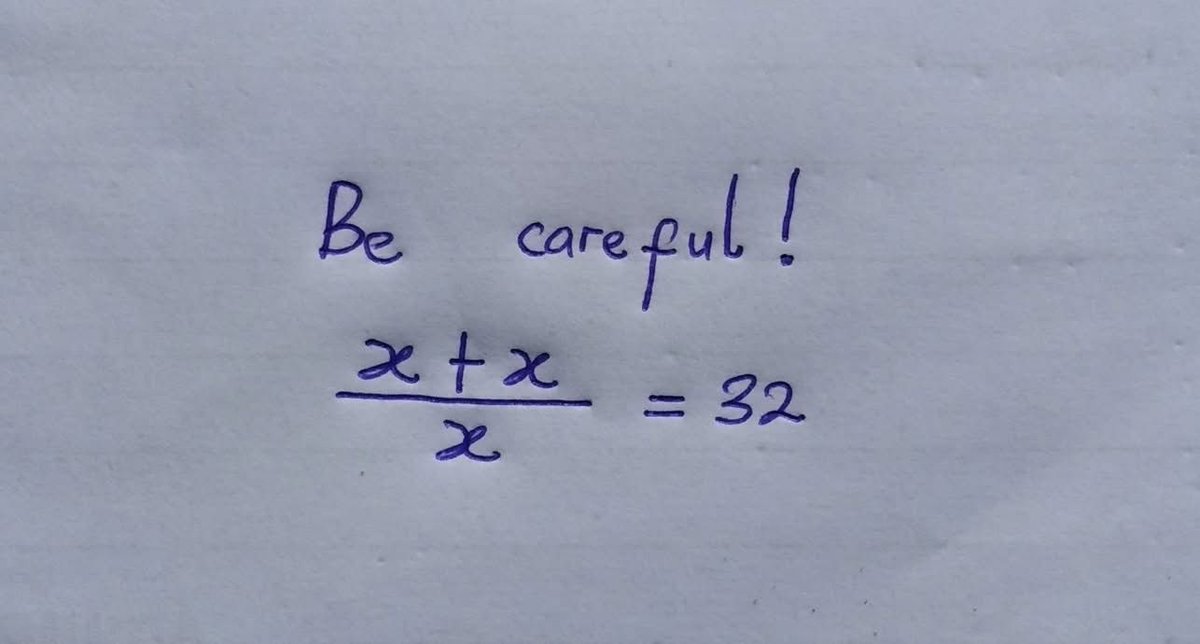 Be careful!
x + x
x
= 32